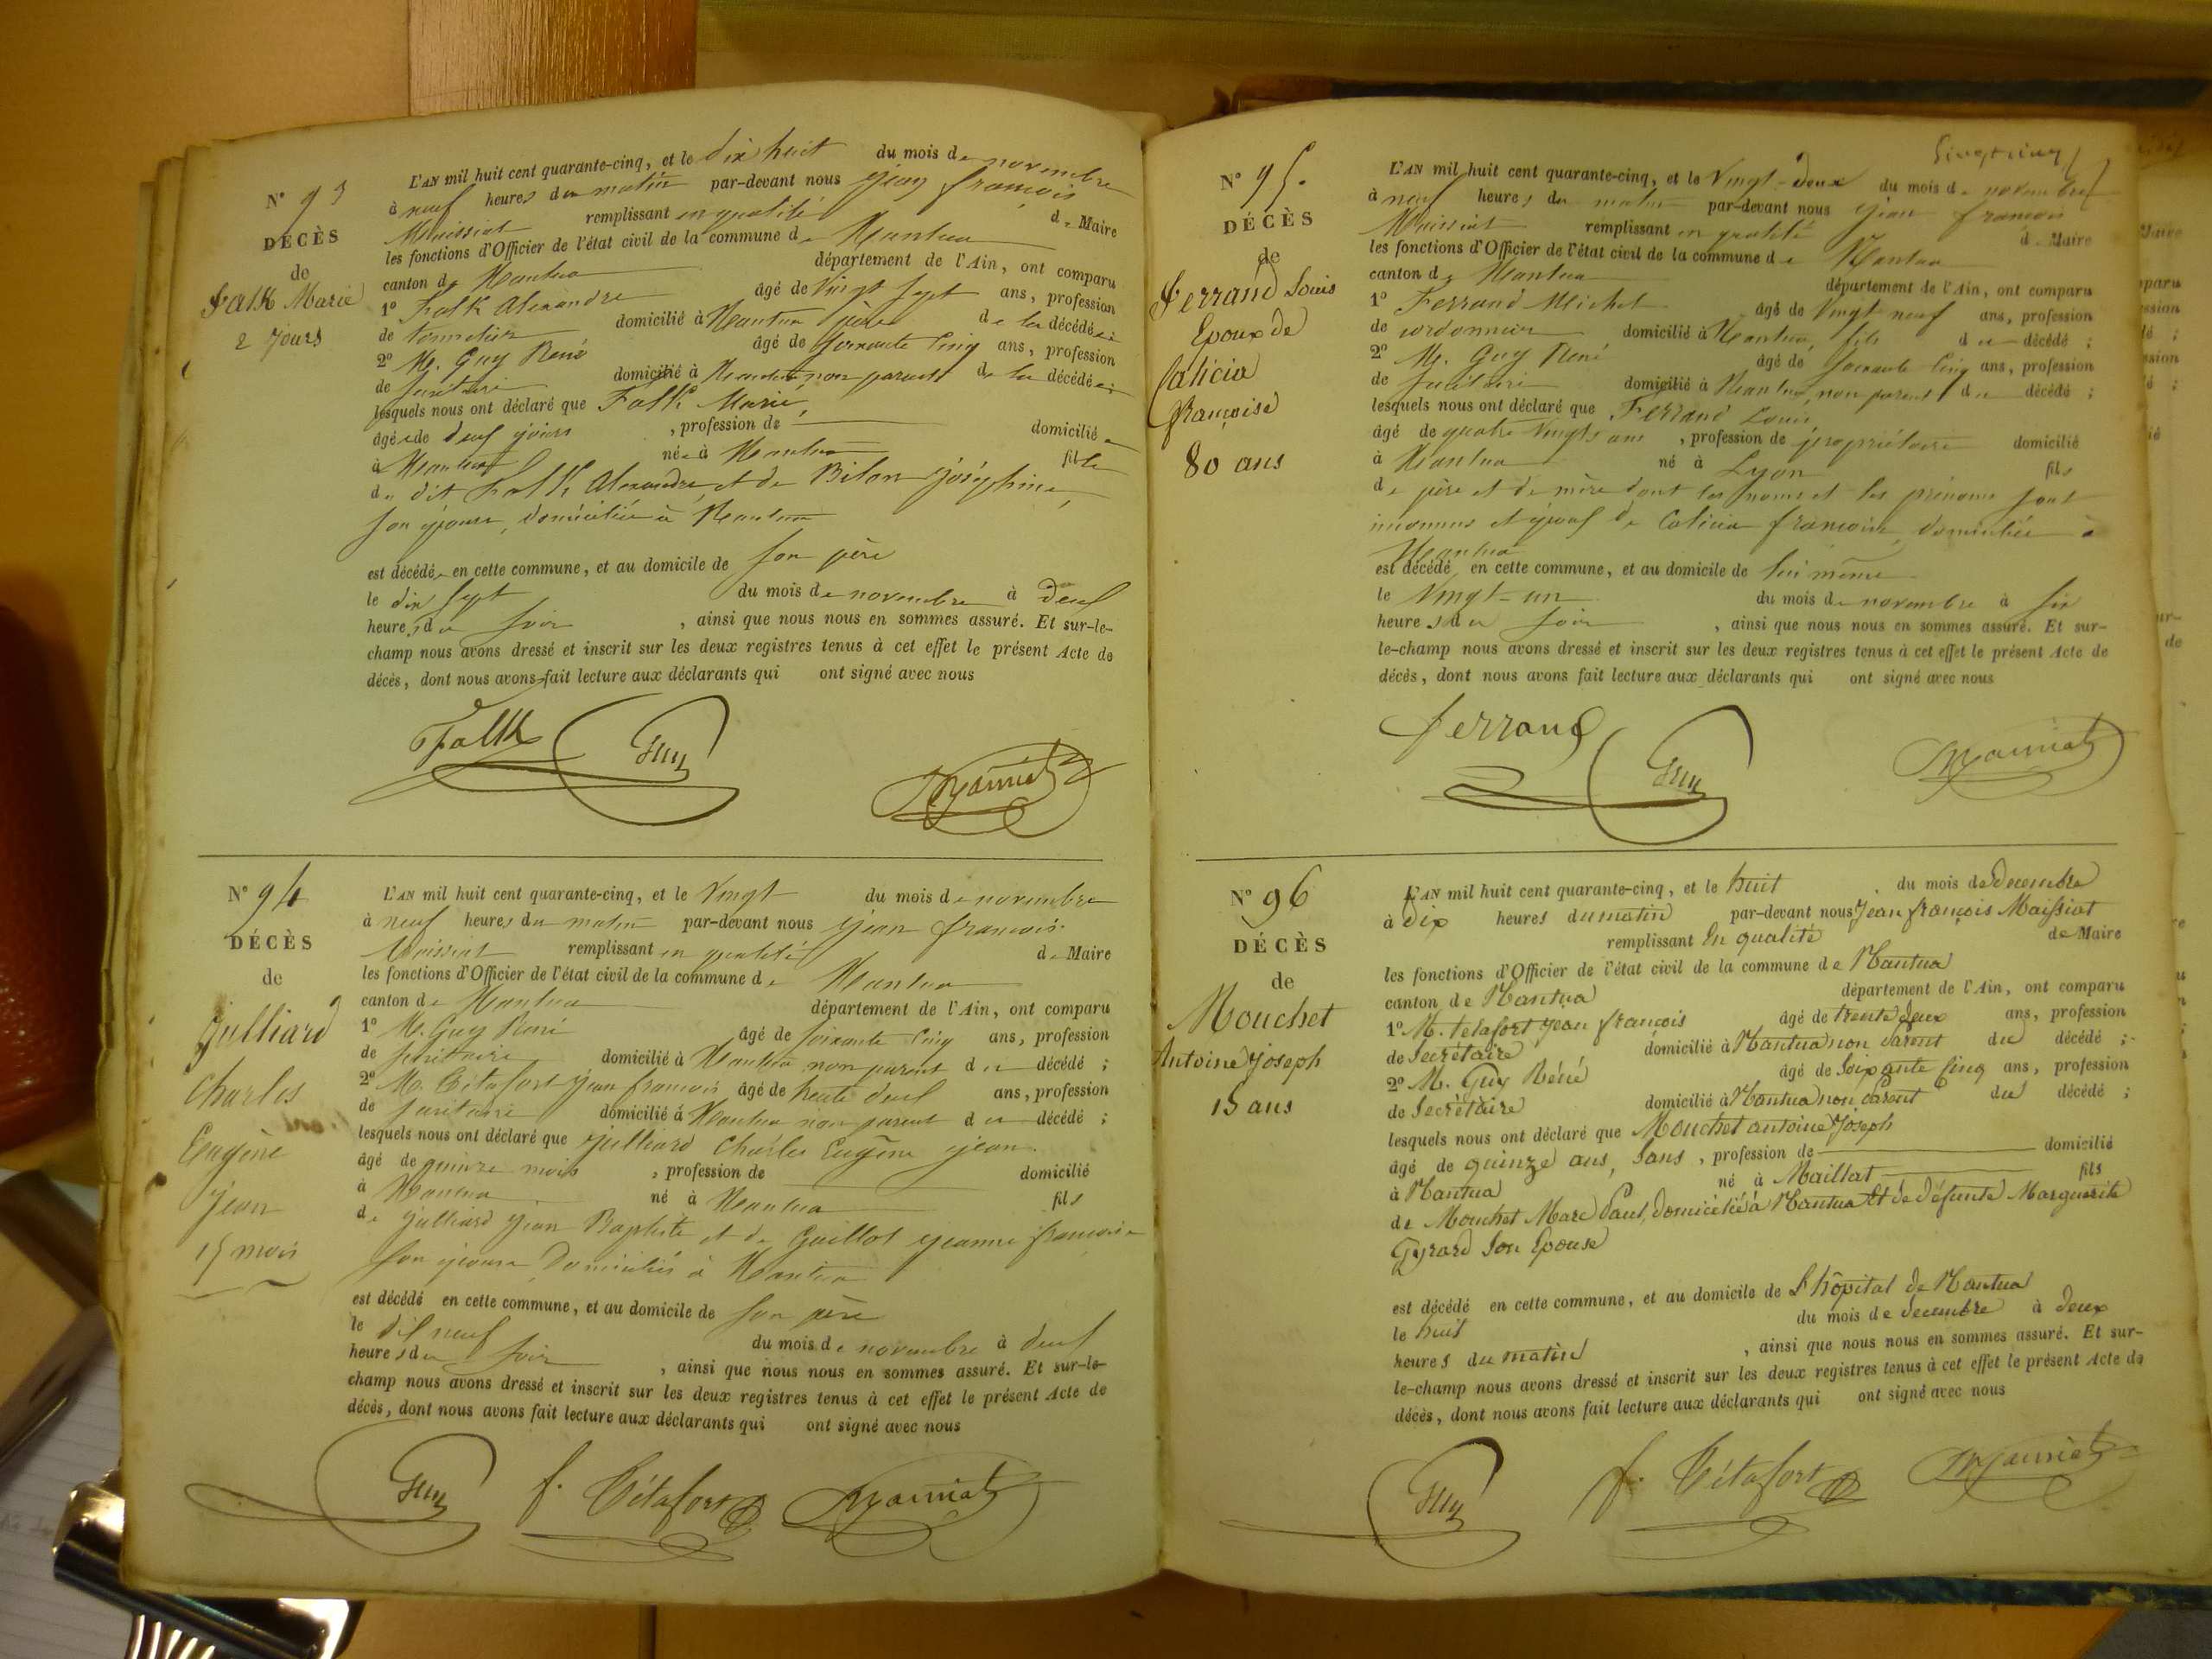 N° 93
DÉCÈS
de
Falk Marie
2 Jours
L'AN mil huit cent quarante-cinq, et le dix huit du mois de novembre
à neuf heures du matin par-devant nous Jean françois
Maissiat remplissant en qualité de Maire
les fonctions d'Officier de l'état civil de la commune de Nantua
canton de Nantua département de l'Ain, ont comparu
1° Falk Alexandre âgé de Vingt sept ans, profession
de tonnelier domicilié à Nantua père de la décédée
2° M. Guy René âgé de soixante cinq ans, profession
de secrétaire domicilié à Nantua non parent de la décédée
lesquels nous ont déclaré que Falk Marie,
âgée de deux jours , profession de domiciliée
à Nantua née à Nantua fille
du dit Falk Alexandre et de Bilon Joséphine,
son épouse, domiciliée à Nantua
est décédée en cette commune, et au domicile de son père
le dix sept du mois de novembre à deux
heures du soir , ainsi que nous nous en sommes assuré. Et sur-le-
champ nous avons dressé et inscrit sur les deux registres tenus à cet effet le présent Acte de
décès, dont nous avons fait lecture aux déclarants qui ont signé avec nous
Falk Guy Maissiat
N° 94
DÉCÈS
de
Julliard
Charles
Eugène
Jean
15 mois
L'AN mil huit cent quarante-cinq, et le Vingt du mois de novembre
à neuf heures du matin par-devant nous Jean françois
Maissiat remplissant en qualité de Maire
les fonctions d'Officier de l'état civil de la commune de Nantua
canton de Nantua département de l'Ain, ont comparu
1° M. Guy René âgé de soixante cinq ans, profession
de secrétaire domicilié à Nantua non parent du décédé ;
2° M. Tétafort Jean françois âgé de trente deux ans, profession
de secrétaire domicilié à Nantua non parent du décédé ;
lesquels nous ont déclaré que Julliard Charles Eugène Jean
âgé de quinze mois , profession de domicilié
à Nantua né à Nantua fils
de Julliard Jean Baptiste et de Guillot Jeanne françoise
son épouse Domiciliés à Nantua
est décédé en cette commune, et au domicile de son père
le dix neuf du mois de novembre à deux
heures du soir , ainsi que nous nous en sommes assuré. Et sur-le-
champ nous avons dressé et inscrit sur les deux registres tenus à cet effet le présent Acte de
décès, dont nous avons fait lecture aux déclarants qui ont signé avec nous
Guy f. Tétafort Maissiat
N° 95.
DÉCÈS
de
Ferrand Louis
Epoux de
Calicia
françoise
80 ans
L'AN mil huit cent quarante-cinq, et le Vingt-deux du mois de novembre
à neuf heures du matin par-devant nous Jean françois
Maissiat remplissant en qualité de Maire
les fonctions d'Officier de l'état civil de la commune de Nantua
canton de Nantua département de l'Ain, ont comparu
1° Ferrand Michel âgé de Vingt neuf ans, profession
de cordonnier domicilié à Nantua, fils du décédé ;
2° M. Guy René âgé de soixante cinq ans, profession
de secrétaire domicilié à Nantua, non parent du décédé ;
lesquels nous ont déclaré que Ferrand Louis
âgé de quatre vingts ans , profession de propriétaire domicilié
à Nantua né à Lyon fils
de père et de mère dont les noms et les prénoms sont
inconnus et époux de Calicia françoise, domiciliée à
Nantua
est décédé en cette commune, et au domicile de lui même
le Vingt-un du mois de novembre à six
heures du soir , ainsi que nous nous en sommes assuré. Et sur-
le-champ nous avons dressé et inscrit sur les deux registres tenus à cet effet le présent Acte de
décès, dont nous avons fait lecture aux déclarants qui ont signé avec nous
ferrand Guy Maissiat
N° 96
DÉCÈS
de
Mouchet
Antoine Joseph
15 ans
L'AN mil huit cent quarante-cinq, et le huit du mois de Decembre
à dix heures du matin par-devant nous Jean françois Maissiat
remplissant En qualité de Maire
les fonctions d'Officier de l'état civil de la commune de Nantua
canton de Nantua département de l'Ain, ont comparu
1° M. tetafort Jean françois âgé de trente deux ans, profession
de Secrétaire domicilié à Nantua non parent du décédé ;
2° M. Guy Réné âgé de Soixante Cinq ans, profession
de Secrétaire domicilié à Nantua non parent du décédé ;
lesquels nous ont déclaré que Mouchet antoine Joseph
âgé de quinze ans, Sans , profession de domicilié
à Nantua né à Maillat fils
de Mouchet Marc Paul, domicilié à Nantua Et de défunte Marguerite
Gyrard Son Epouse
est décédé en cette commune, et au domicile de L'hôpital de Nantua
le huit du mois de decembre à deux
heures du matin , ainsi que nous nous en sommes assuré. Et sur-
le-champ nous avons dressé et inscrit sur les deux registres tenus à cet effet le présent Acte de
décès, dont nous avons fait lecture aux déclarants qui ont signé avec nous
Guy f. Tétafort Maissiat